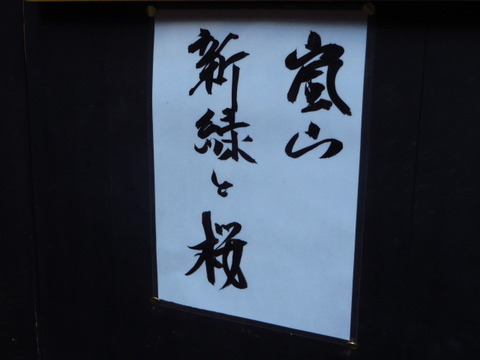 嵐山
新緑と桜